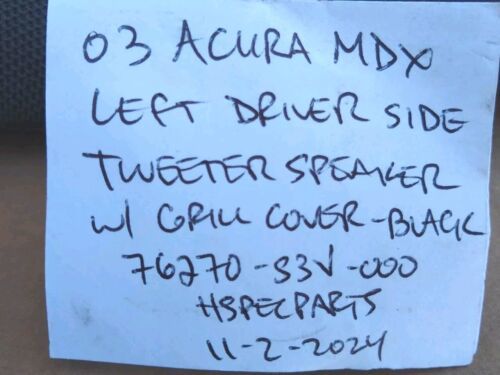 03 ACURA MDX
LEFT DRIVER SIDE
TWEETER SPEAKER
W/ GRILL COVER-BLACK
76270-S3V-000
HSPECPARTS
11-2-2024